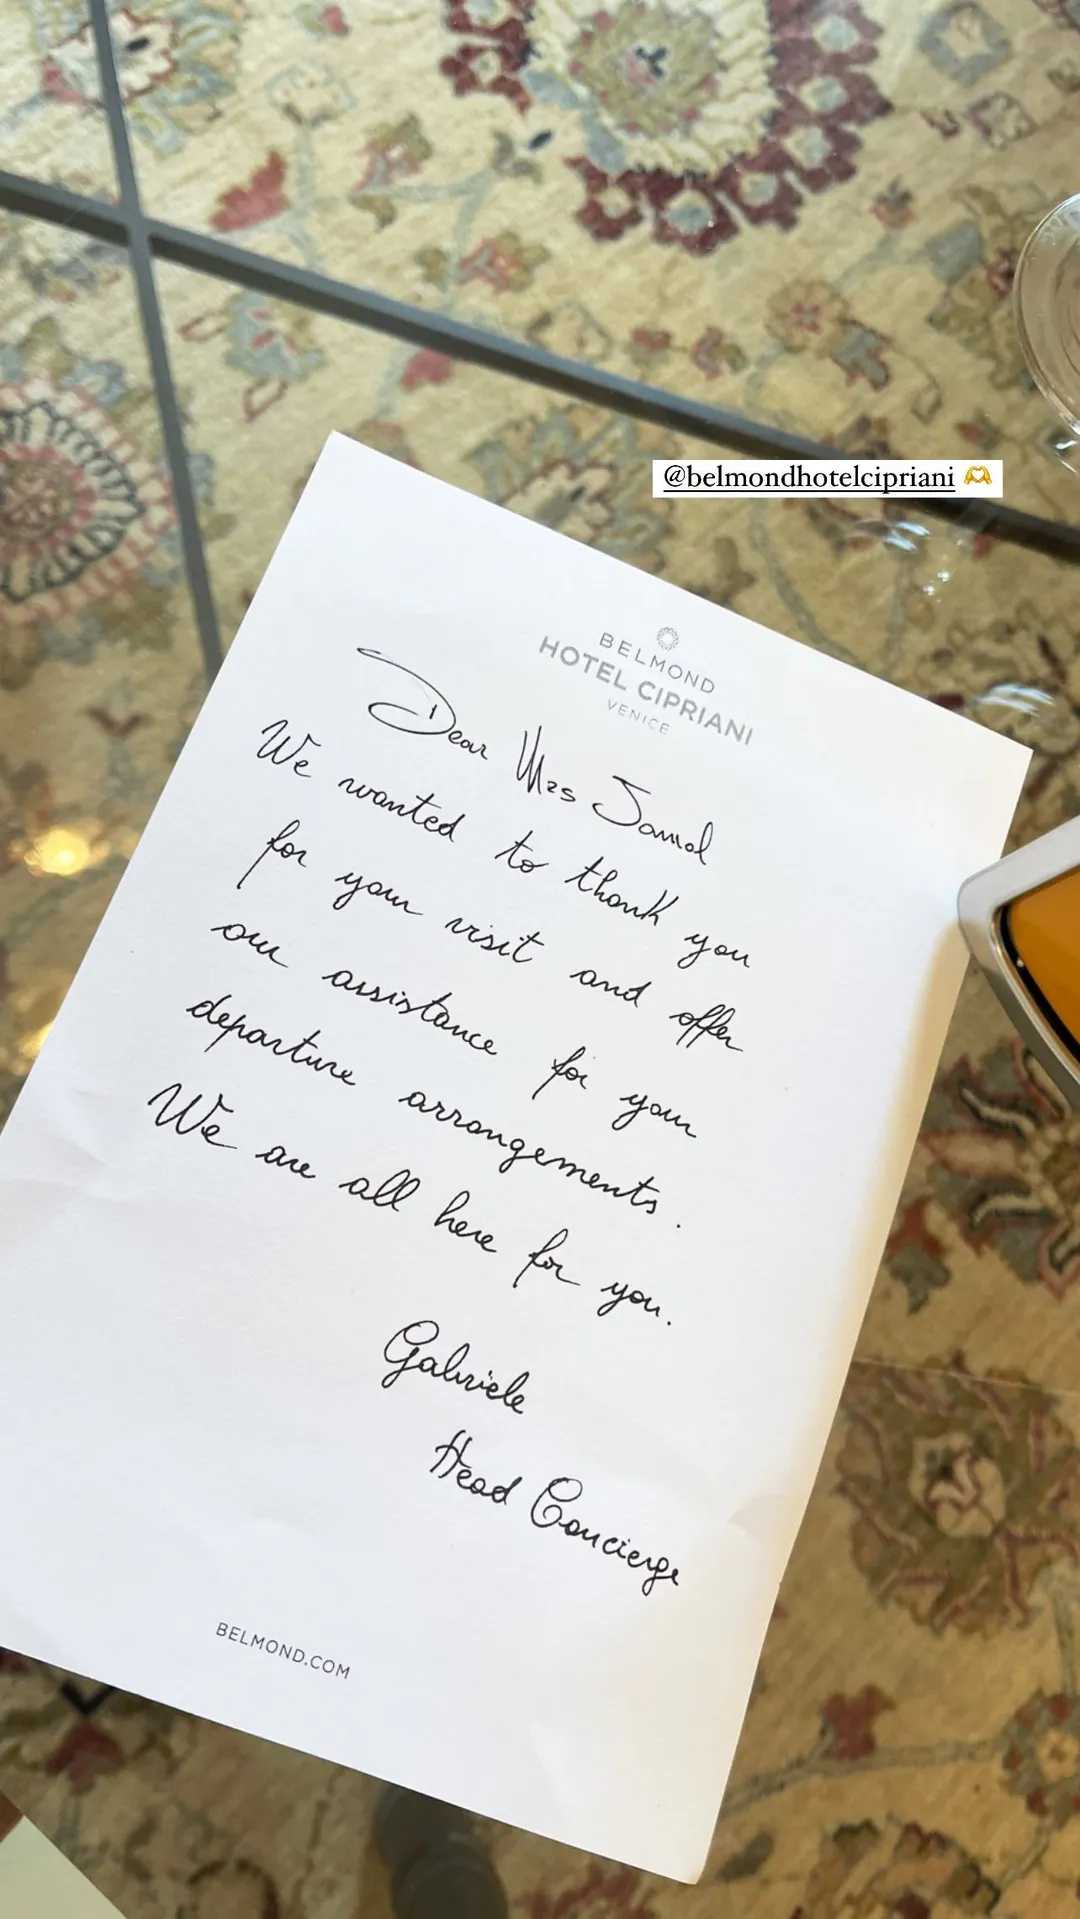 @belmondhotelcipriani 🫶
BELMOND
HOTEL CIPRIANI
VENICE
Dear Mrs Jamal
We wanted to thank you
for your visit and offer
our assistance for your
departure arrangements.
We are all here for you.
Gabriele
Head Concierge
BELMOND.COM